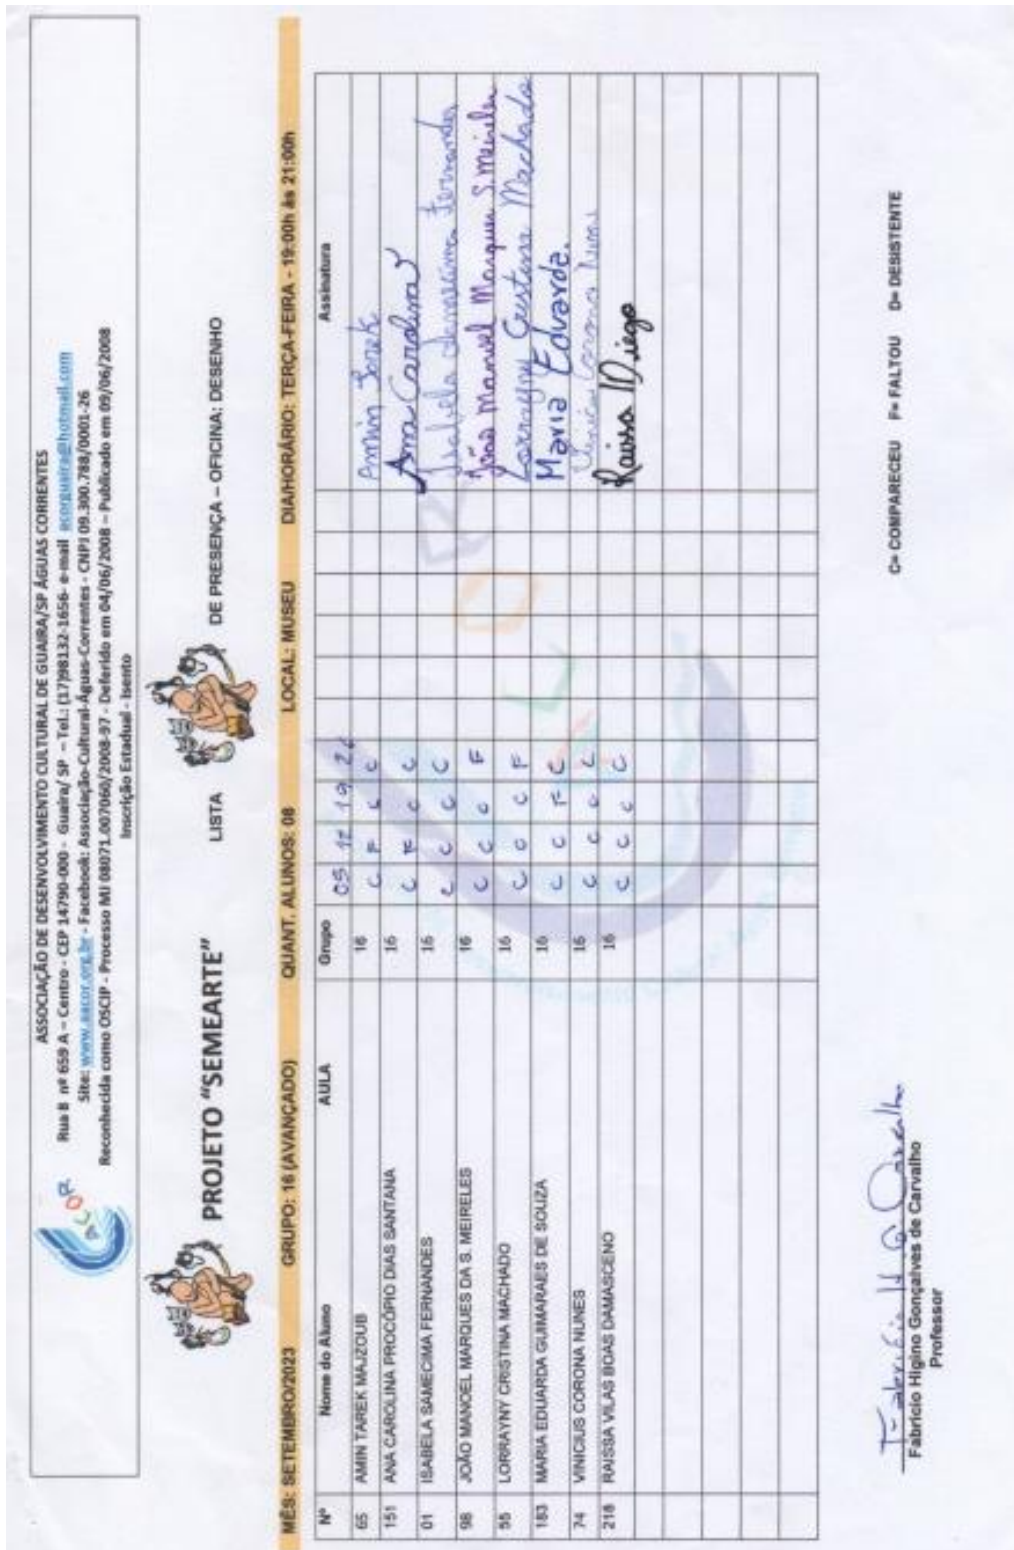 ASSOCIAÇÃO DE DESENVOLVIMENTO CULTURAL DE GUAIRA/SP ÁGUAS CORRENTES
Rua 8 nº 659 A – Centro - CEP 14790-000 - Guaira/ SP – Tel.: (17)98132-1656- e-mail acorguaira@hotmail.com
Site: www.aacor.org.br - Facebook: Associação-Cultural-Águas-Correntes - CNPJ 09.300.788/0001-26
Reconhecida como OSCIP - Processo MJ 08071.007060/2008-97 - Deferido em 04/06/2008 – Publicado em 09/06/2008
Inscrição Estadual - Isento
ACOR
PROJETO “SEMEARTE” LISTA DE PRESENÇA – OFICINA: DESENHO
MÊS: SETEMBRO/2023 GRUPO: 16 (AVANÇADO) QUANT. ALUNOS: 08 LOCAL: MUSEU DIA/HORÁRIO: TERÇA-FEIRA - 19:00h às 21:00h
Nº Nome do Aluno AULA Grupo 05 12 19 26 Assinatura
65 AMIN TAREK MAJZOUB 16 C F C C Amin Tarek
151 ANA CAROLINA PROCÓPIO DIAS SANTANA 16 C F C C Ana Carolina
01 ISABELA SAMECIMA FERNANDES 16 C C C C Isabela Samecima Fernandes
98 JOÃO MANOEL MARQUES DA S. MEIRELES 16 C C C F João Manoel Marques S. Meireles
55 LORRAYNY CRISTINA MACHADO 16 C C C F Lorrayny Cristina Machado
183 MARIA EDUARDA GUIMARAES DE SOUZA 16 C C F C Maria Eduarda.
74 VINICIUS CORONA NUNES 16 C C C C Vinicius Corona Nunes
218 RAISSA VILAS BOAS DAMASCENO 16 C C C C Raissa Diego
C= COMPARECEU F= FALTOU D= DESISTENTE
Fabrício H. G. Carvalho
Fabrício Higino Gonçalves de Carvalho
Professor